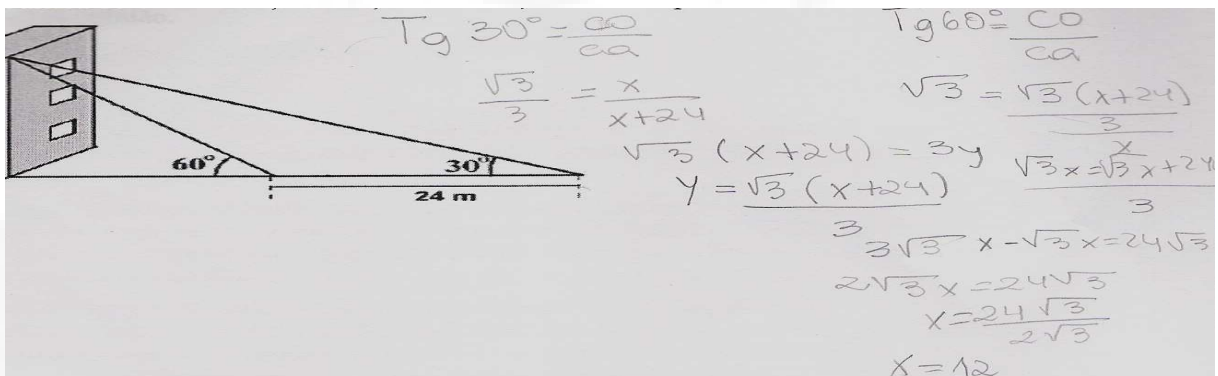 60°
30°
24 m
Tg 30° = co/ca
√3/3 = x/x+24
√3 (x+24) = 3y
y = √3 (x+24)/3
Tg 60° = co/ca
√3 = √3 (x+24)/3/x
√3x = √3x+24/3
3√3 x - √3 x = 24√3
2√3 x = 24√3
x = 24√3/2√3
x = 12